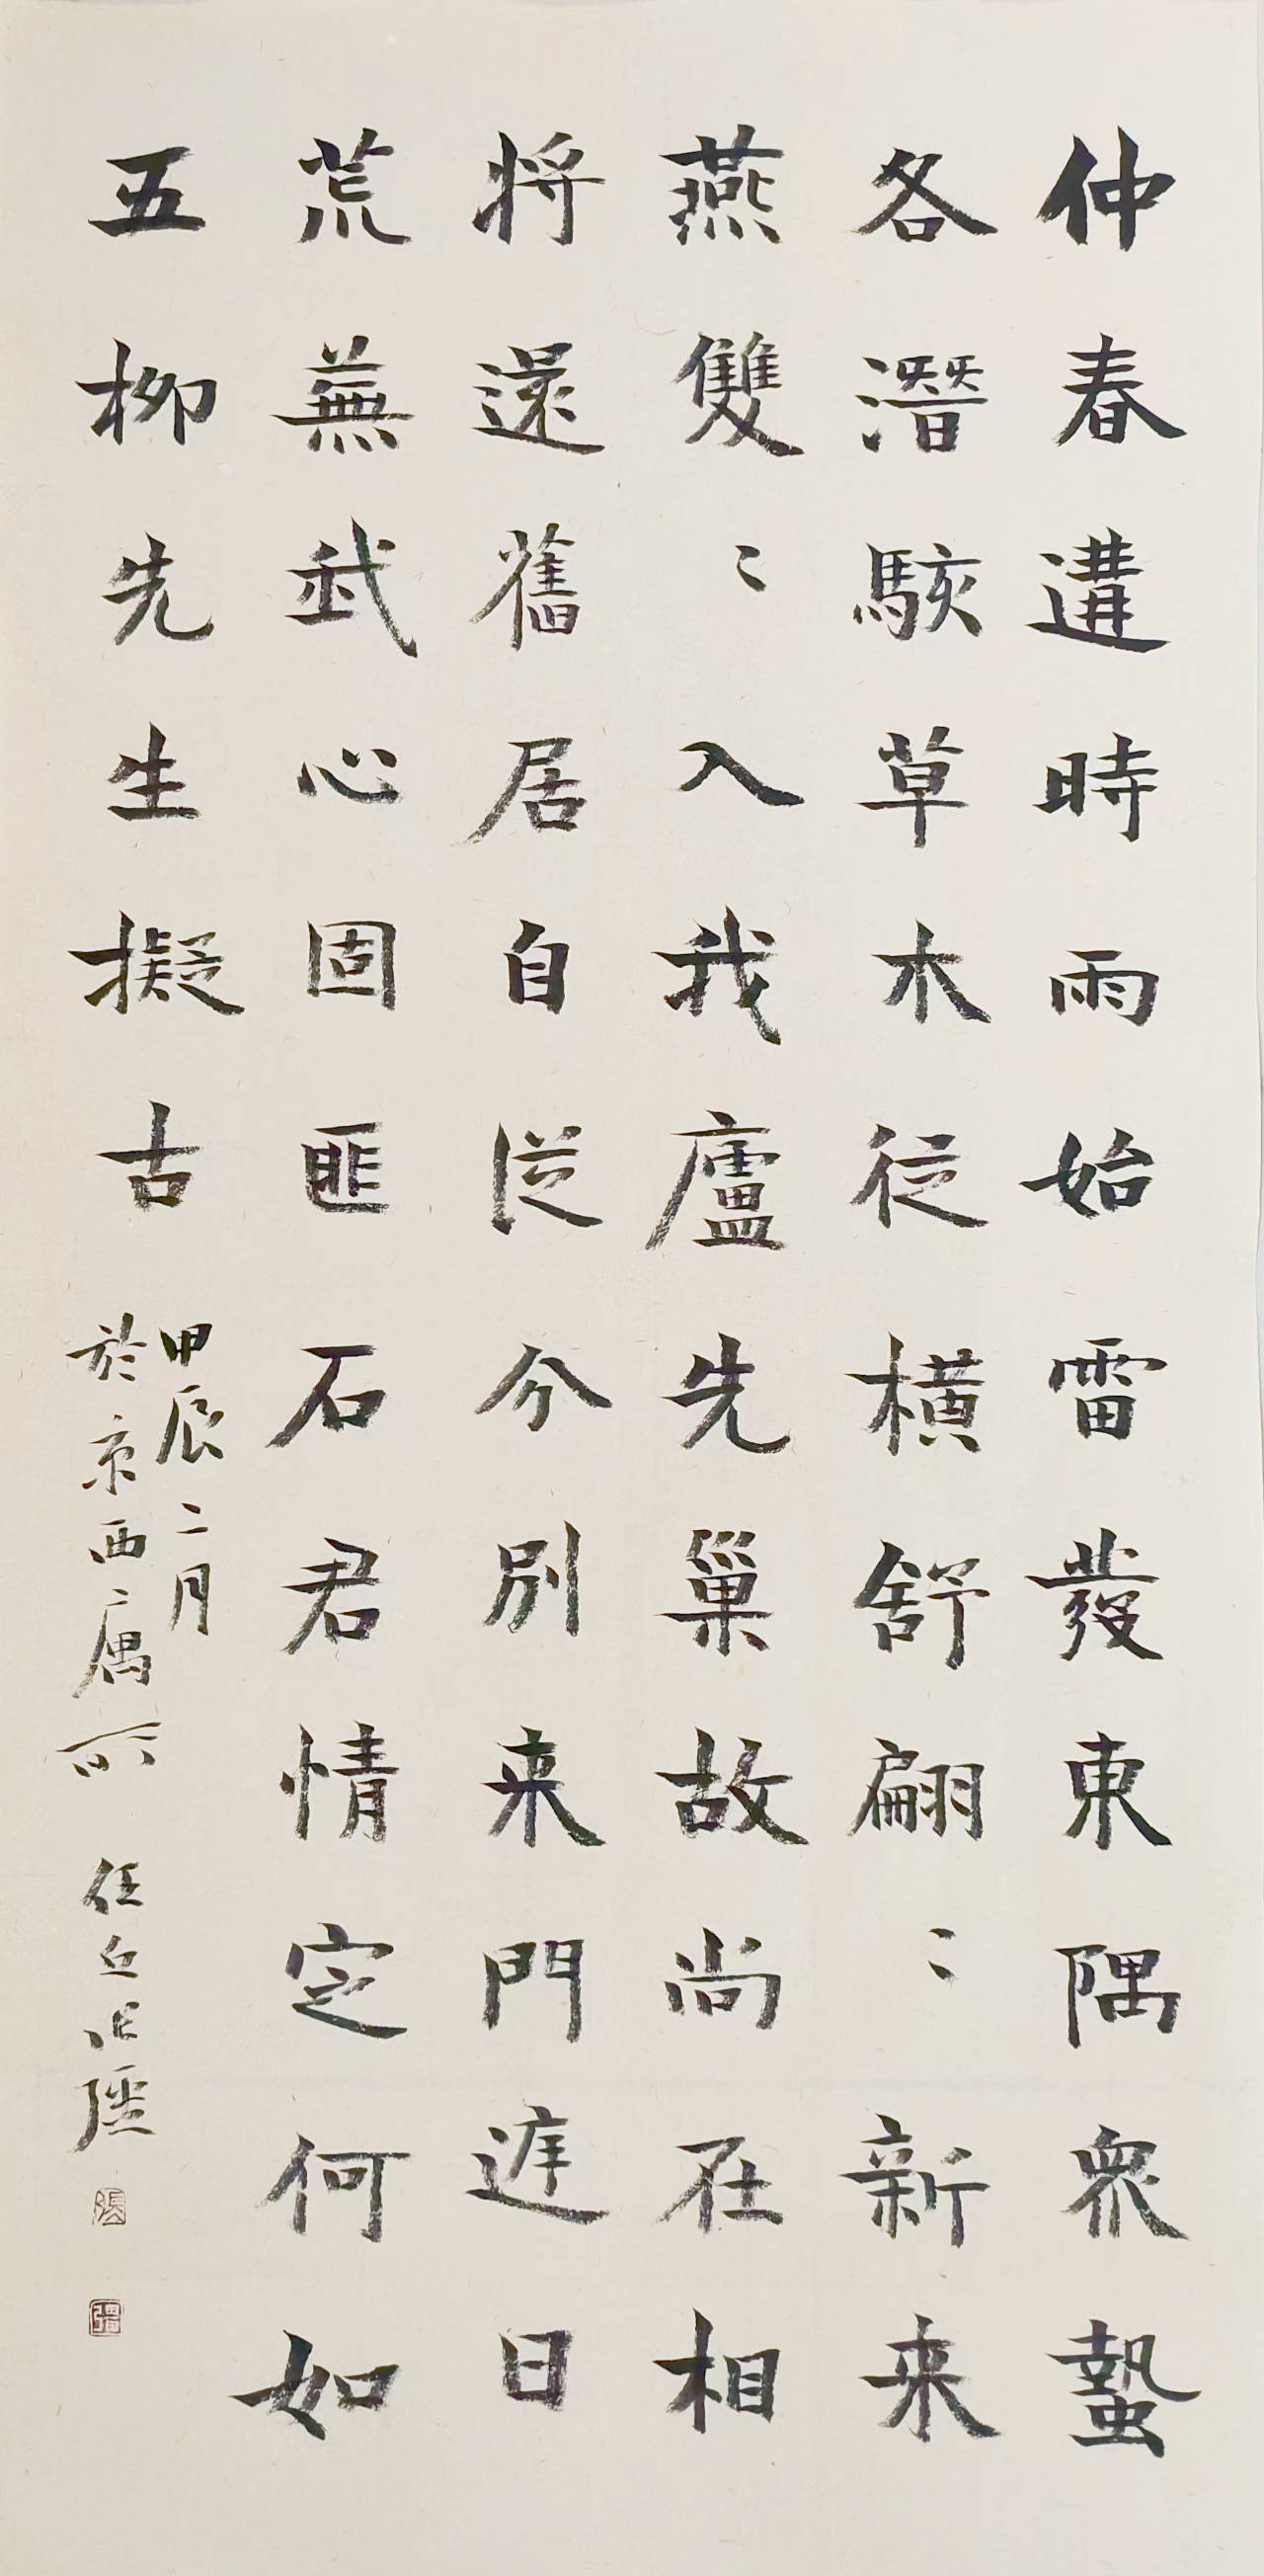 仲春遘時雨始雷發東隅眾蟄
各潛駭草木從橫舒翩〻新来
燕雙〻入我廬先巢故尚在相
将還舊居自從分別来門庭日
荒蕪我心固匪石君情定何如
五柳先生擬古
甲辰二月
於京西寓所 任丘张
張